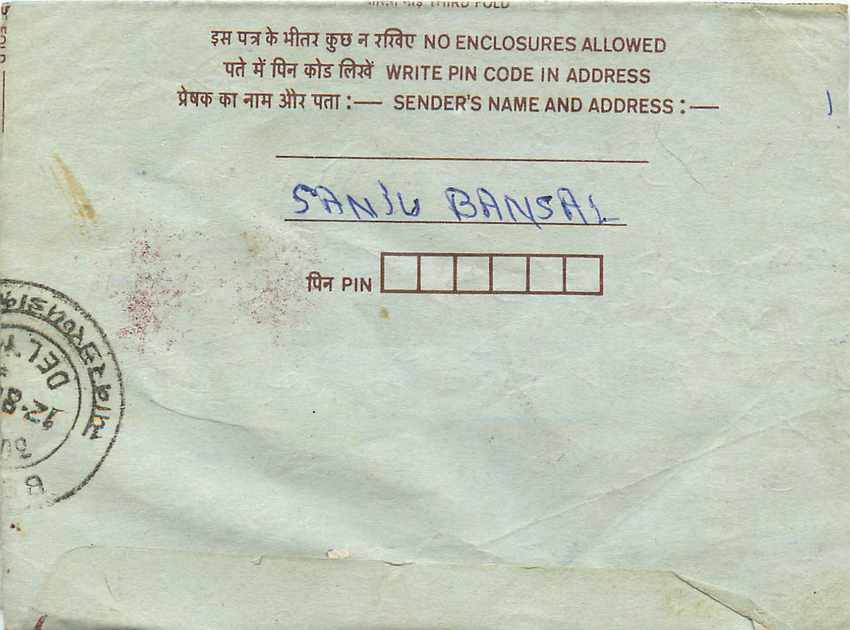 THIRD FOLD
इस पत्र के भीतर कुछ न रखिए NO ENCLOSURES ALLOWED
पते में पिन कोड लिखें WRITE PIN CODE IN ADDRESS
प्रेषक का नाम और पता :— SENDER'S NAME AND ADDRESS :—
SANJU BANSAL
पिन PIN
DELY